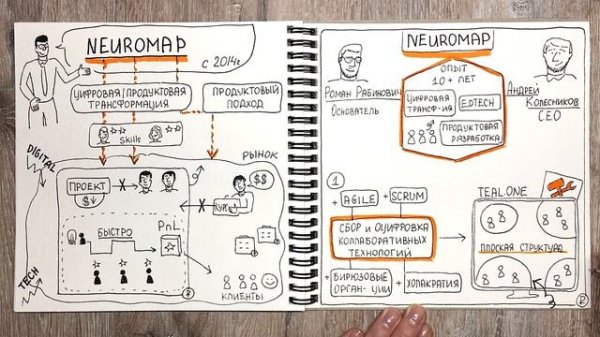 NEUROMAP
с 2014г.
ЦИФРОВАЯ/ПРОДУКТОВАЯ
ТРАНСФОРМАЦИЯ
ПРОДУКТОВЫЙ
ПОДХОД
Skills
DIGITAL
РЫНОК
ПРОЕКТ
$↓
X
X
$$
БЫСТРО
PnL
TECH
КЛИЕНТЫ
NEUROMAP
ОПЫТ
10+ ЛЕТ
ЦИФРОВАЯ
ТРАНСФ-ИЯ
EDTECH
ПРОДУКТОВАЯ
РАЗРАБОТКА
Роман Рабинович
Основатель
Андрей
Колесников
CEO
1
+ AGILE
+ SCRUM
СБОР и ОЦИФРОВКА
КОЛЛАБОРАТИВНЫХ
ТЕХНОЛОГИЙ
+ БИРЮЗОВЫЕ
ОРГАН-ЦИИ
+ ХОЛАКРАТИЯ
TEAL.ONE
ПЛОСКАЯ СТРУКТУРА